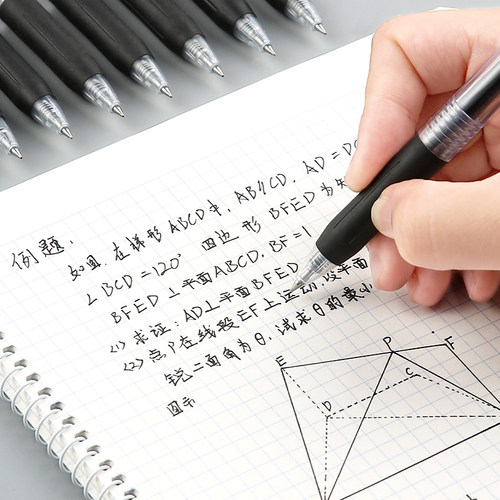 例题:
如图.在梯形ABCD中,AB∥CD,AD=DC
∠BCD=120° 四边形BFED为矩
BFED⊥平面ABCD,BF=1
(1)求证:AD⊥平面BFED
(2)点P在线段EF上运动,设平面
锐二面角为θ,试求θ的最小
图示
E P F
C
D